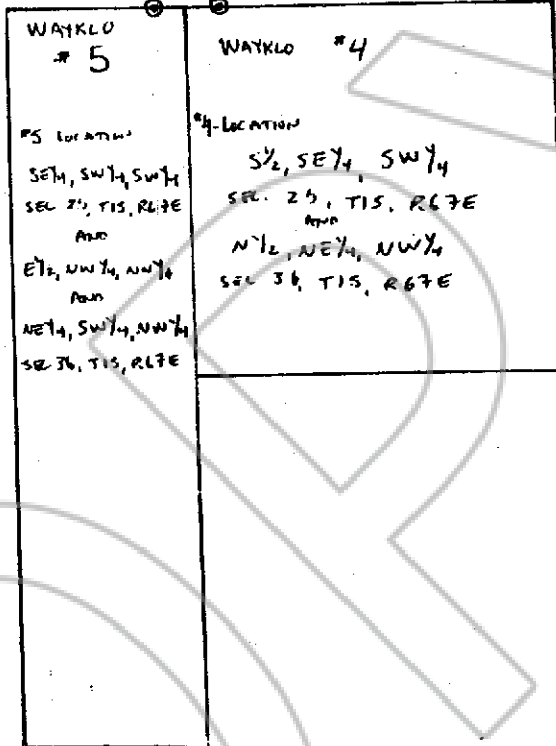 WAYKLO
# 5
#5 LOCATION
SE¼, SW¼, SW¼
SEC 25, T1S, R67E
AND
E½, NW¼, NW¼
AND
NE¼, SW¼, NW¼
SEC 36, T1S, R67E
WAYKLO #4
#4-LOCATION
S½, SE¼, SW¼
SEC. 25, T1S, R67E
AND
N½, NE¼, NW¼
SEC 36, T1S, R67E